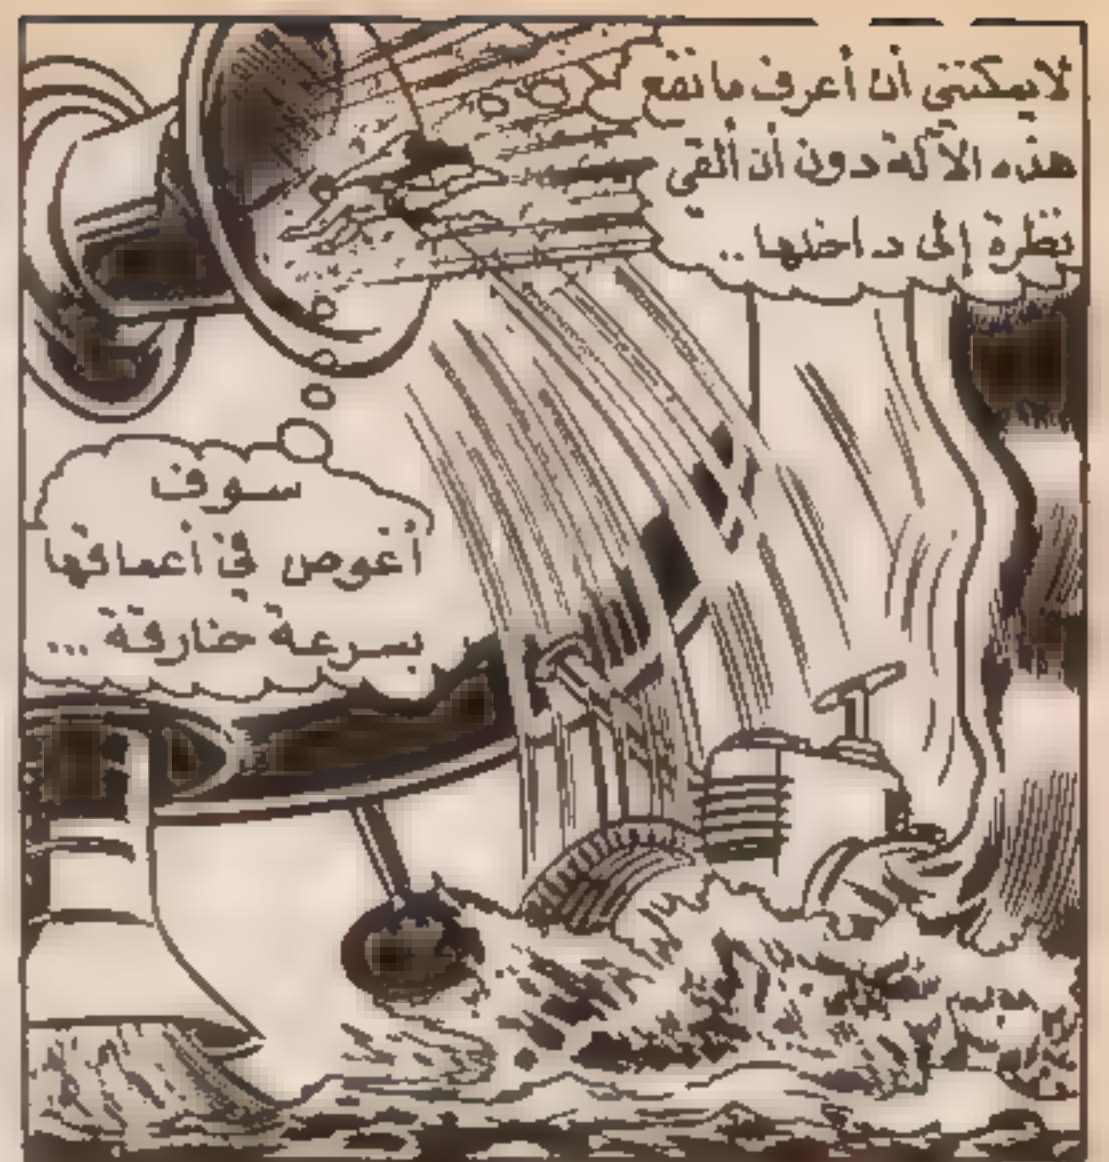 لايمكنني أن أعرف ما نفع
هذه الآلة دون أن ألقي
نظرة إلى داخلها..
سوف
أغوص في أعماقها
بسرعة خارقة ...